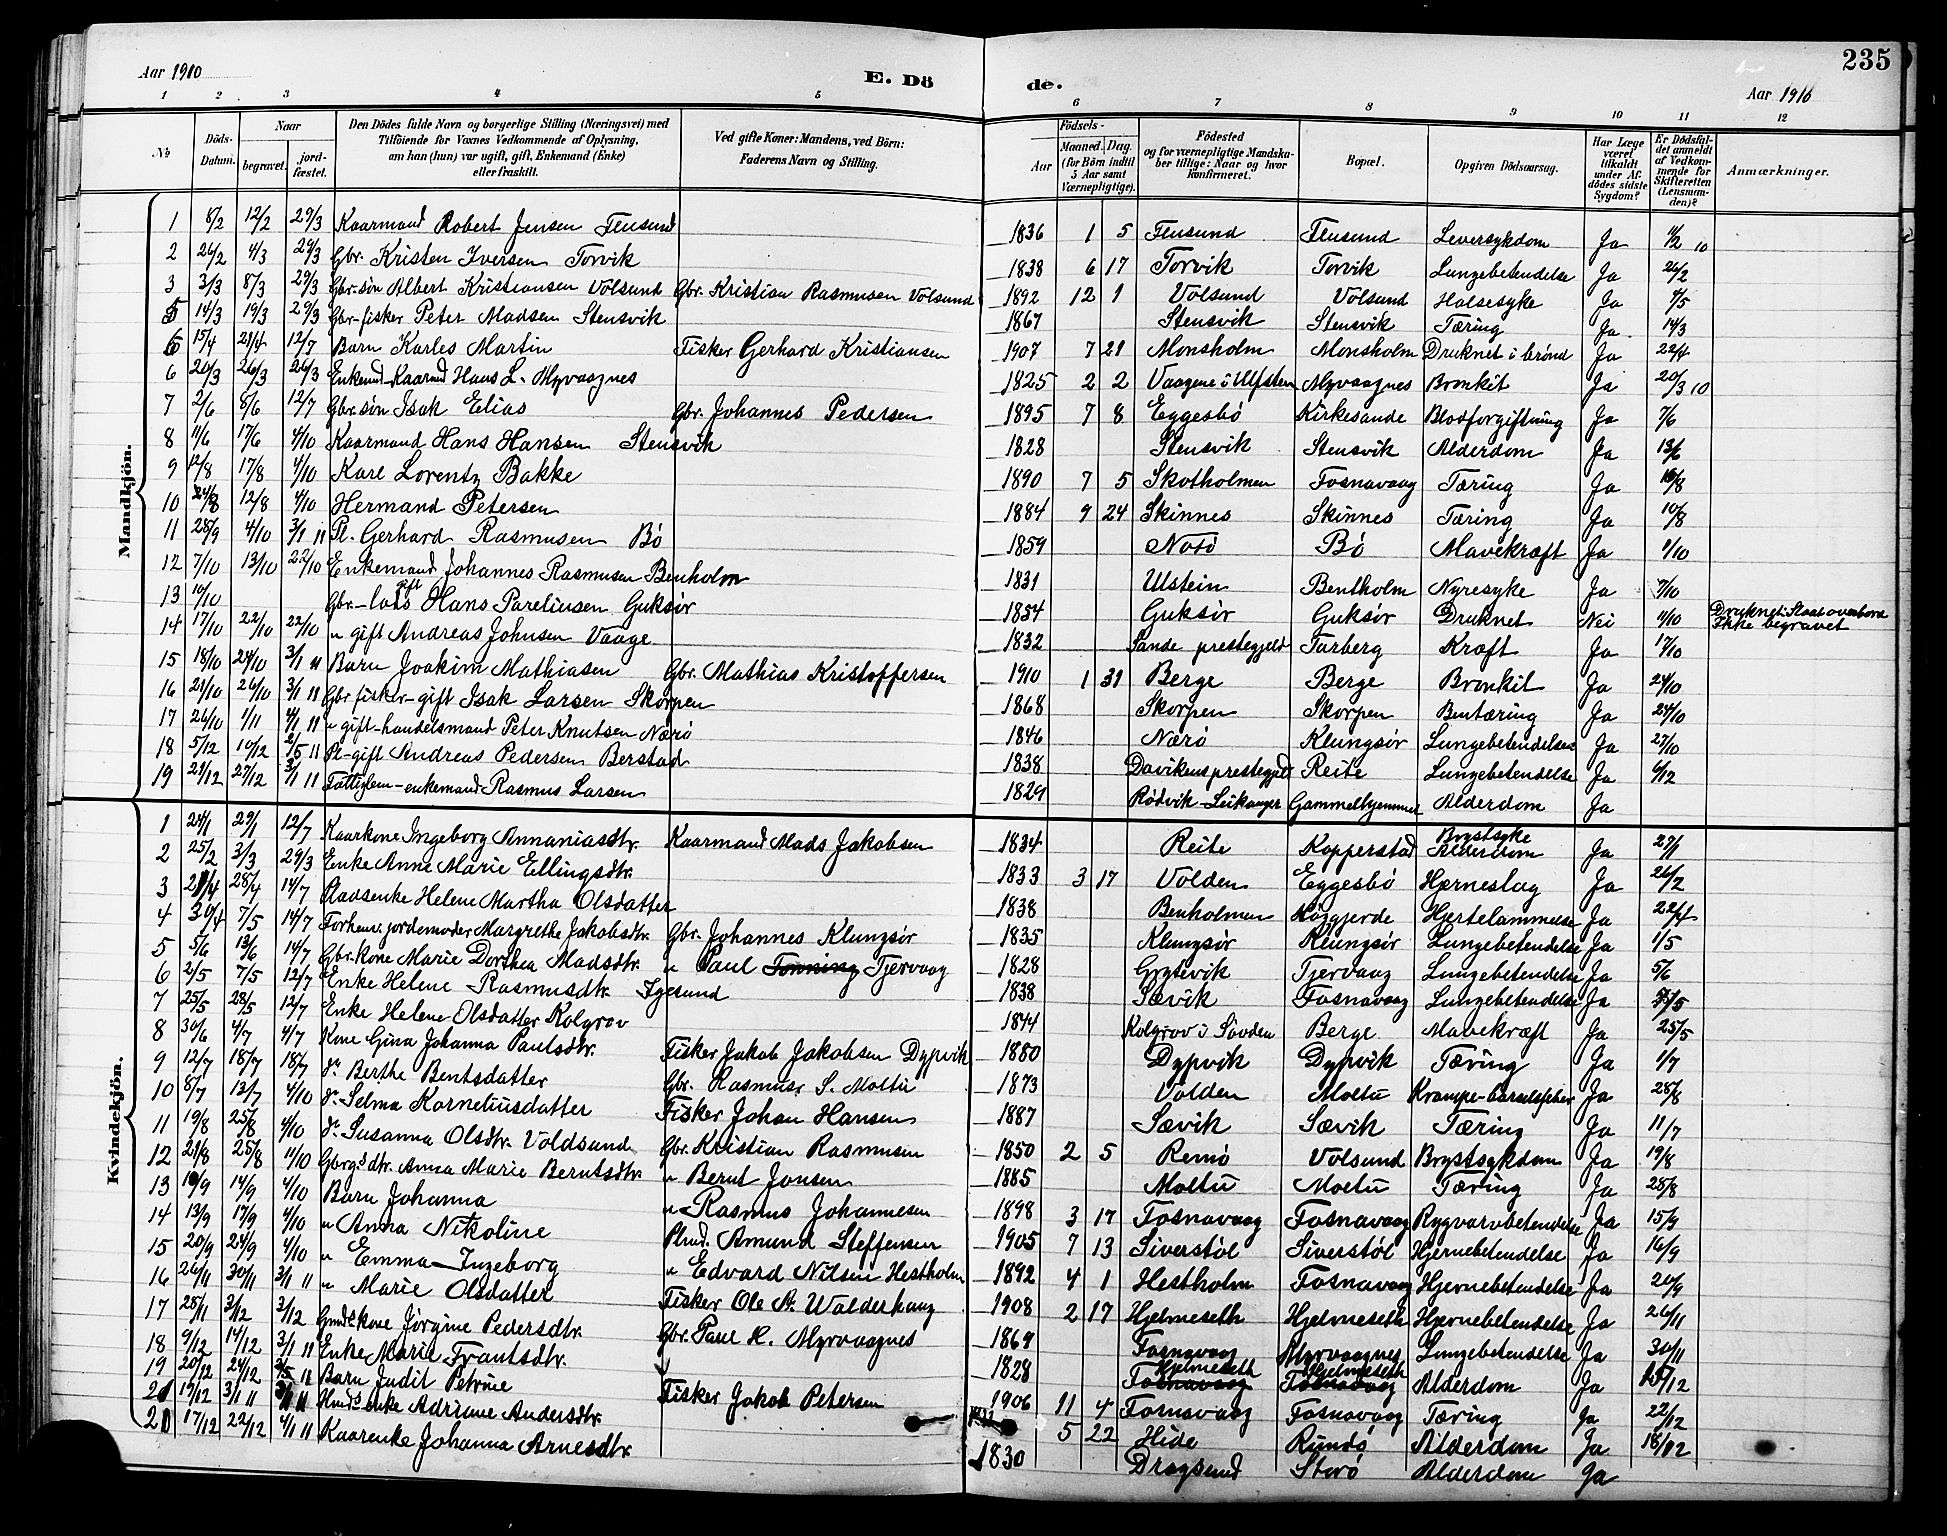 235
Aar 1910
E. Döde.
Aar 1910
1 2 3 4 5 6 7 8 9 10 11 12
№
Döds-Datum.
Naar
begravet.
jord-fæstet.
Den Dödes fulde Navn og borgerlige Stilling (Næringsvei) med
Tilföiende for Voxnes Vedkommende af Oplysning,
om han (hun) var ugift, gift, Enkemand (Enke)
eller fraskilt.
Ved gifte Koner: Mandens, ved Börn:
Faderens Navn og Stilling.
Födsels-
Aar
Maaned. Dag.
(for Börn indtil
5 Aar samt
Værnepligtige).
Födested
og for værnepligtige Mandska-
ber tillige: Naar og hvor
konfirmeret.
Bopæl.
Opgiven Dödsaarsag.
Har Læge
været
tilkaldt
under Af-
dödes sidste
Sygdom?
Er Dödsfal-
det anmeldt
af Vedkom-
mende for
Skifteretten
(Lensman-
den)?
Anmærkninger.
Mandkjön.
1 8/2 12/2 29/3 Kaarmand Robert Jensen Flusund 1836 1 5 Flusund Flusund Leversykdom Ja 11/2 10
2 26/2 4/3 29/3 Gbr. Kristen Iversen Torvik 1838 6 17 Torvik Torvik Lungebetendelse Ja 26/2
3 3/3 8/3 29/3 Gbr.søn Albert Kristiansen Volsund Gbr. Kristian Rasmusen Volsund 1892 12 1 Volsund Volsund Halsesyke Ja 4/5
5 14/3 19/3 29/3 Gbr-fisker Peter Madsen Stensvik 1867 Stensvik Stensvik Tæring Ja 14/3
6 15/4 21/4 12/7 Barn Karles Martin Fisker Gerhard Kristiansen 1907 7 21 Monsholm Monsholm Druknet i brønd Ja 22/4
6 20/3 26/3 26/3 Enkemd-Kaarmd Hans L. Myrvaagnes 1825 2 2 Vaagene i Ulfsten Myrvaagnes Bronkit Ja 20/3 10
7 2/6 8/6 12/7 Gbr.søn Isak Elias Gbr. Johannes Pedersen 1895 7 8 Eggesbø Kirkesande Blodforgiftning Ja 7/6
8 11/6 17/6 4/10 Kaarmand Hans Hansen Stensvik 1828 Stensvik Stensvik Alderdom Ja 13/6
9 12/8 17/8 4/10 Karl Lorentz Bakke 1890 7 5 Skotholmen Fosnavaag Tæring Ja
10 12/8 4/10 Hermand Petersen 1884 9 24 Skinnes Skinnes Tæring Ja 10/8
11 28/9 4/10 3/1 11 Pl. Gerhard Rasmusen Bø 1859 Notø Bø Mavekræft Ja 1/10
12 7/10 13/10 22/10 Enkemand Johannes Rasmusen Benholm 1831 Ulstein Bentholm Nyresyke Ja 7/10
13 10/10 Gbr-lods gift Hans Pareliusen Guksør 1854 Guksør Guksør Druknet Nei 11/10 Druknet. Slaat overbord Ikke begravet
14 17/10 22/10 22/10 " gift Andreas Johnsen Vaage 1832 Sande prestegjeld Tarberg Kræft Ja 17/10
15 18/10 24/10 3/1 11 Barn Joakim Mathiasen Gbr. Mathias Kristoffersen 1910 1 31 Berge Berge Bronkit Ja 24/10
16 21/10 26/10 3/1 11 Gbr fisker-gift Isak Larsen Skorpen 1868 Skorpen Skorpen Bentæring Ja 24/10
17 26/10 1/11 4/1 11 " gift-handelsmand Peter Knutsen Nærø 1846 Nærø Klungsør Lungebetendelse Ja 27/10
18 5/12 10/12 2/5 11 Pl-gift Andreas Pedersen Berstad 1838 Davikens prestegjeld Reite Lungebetendelse Ja 6/12
19 21/12 27/12 3/1 11 Fattiglem-enkemand Rasmus Larsen 1829 Rødvik-Leikanger Gammelhjemmet Alderdom Ja
Kvindekjön.
1 24/1 29/1 12/7 Kaarkone Ingeborg Annaniasdtr. Kaarmand Mads Jakobsen 1834 Reite Kopperstad Brystsyke Alderdom Ja 27/1
2 25/2 3/3 29/3 Enke Anne Marie Ellingsdtr. 1833 3 17 Volden Eggesbø Hjerneslag Ja 26/2
3 21/4 28/4 14/7 Pladsenke Helene Martha Olsdatter 1838 Benholmen Høggjerde Hjertelammelse Ja 22/4
4 30/4 7/5 14/7 Forhenv. jordemoder Margrethe Jakobsdtr. Gbr. Johannes Klungsør 1835 Klungsør Klungsør Lungebetendelse Ja 1/5
5 5/6 13/6 14/7 Gbr.kone Marie Dorthea Madsdtr. " Paul Tonning Tjervaag 1828 Grytevik Tjervaag Lungebetendelse Ja 5/6
6 2/5 7/5 12/7 Enke Helene Rasmusdtr. Igesund 1838 Sævik Fosnavaag Lungebetendelse Ja
7 25/5 28/5 12/7 Enke Helene Olsdatter Kolgrov 1844 Kolgrov i Søvden Berge Mavekræft Ja 25/5
8 30/6 4/7 4/7 Kone Gina Johanna Paulsdtr. Fisker Jakob Jakobsen Dypvik 1880 Dypvik Dypvik Tæring Ja 1/7
9 12/7 18/7 18/7 do Berthe Bentsdatter Gbr. Rasmus S. Moltu 1873 Volden Moltu Krampe-barselfeber Ja 28/8
10 8/7 13/7 4/10 do Selma Korneliusdatter Fisker Johan Hansen 1887 Sævik Sævik Tæring Ja 11/7
11 19/8 25/8 4/10 do Susanna Olsdtr. Voldsund Gbr. Kristian Rasmusen 1850 2 5 Remø Volsund Brystsykdom Ja 19/8
12 21/8 25/8 4/10 Gbrgs dtr. Anna Marie Berntsdtr. " Bernt Jonsen 1885 Moltu Moltu Tæring Ja 25/8
13 14/9 4/10 Barn Johanna " Rasmus Johannesen 1898 3 17 Fosnavaag Fosnavaag Rygvarvbetendelse Ja 15/9
14 13/9 17/9 4/10 " Anna Nikoline Plmd. Amund Steffensen 1905 7 13 Siverstøl Siverstøl Hjernebetendelse Ja 16/9
15 20/9 24/9 4/10 " Emma Ingeborg " Edvard Nilsen Hestholm 1892 4 1 Hestholm Fosnavaag Hjernebetendelse Ja 20/9
16 26/11 30/11 3/1 11 " Marie Olsdatter Fisker Ole A. Walderhaug 1908 2 17 Hjelmeseth Hjelmeseth Hjernebetendelse Ja 26/11
17 28/11 3/12 3/12 Gmds kone Jørgine Pedersdtr. Gbr. Paul K. Myrvaagnes 1869 Fosnavaag Myrvaagnes Lungebetendelse Ja 30/11
18 9/12 14/12 3/1 11 Enke Marie Frantsdtr. 1828 Hjelmeseth Fosnavaag Hjelmeseth Fosnavaag Alderdom Ja
19 20/12 24/12 2/5 11 Barn Judit Petrine Fisker Jakob Petersen 1906 11 4 Fosnavaag Fosnavaag Tæring Ja 22/12
21 19/12 3/1 11 enke Adriane Andersdtr. 5 22 Hide Rundø Alderdom Ja 18/12
21 17/12 22/12 4/1 11 Kaarenke Johanna Arnesdtr. 1830 Dragsund Storø Alderdom Ja